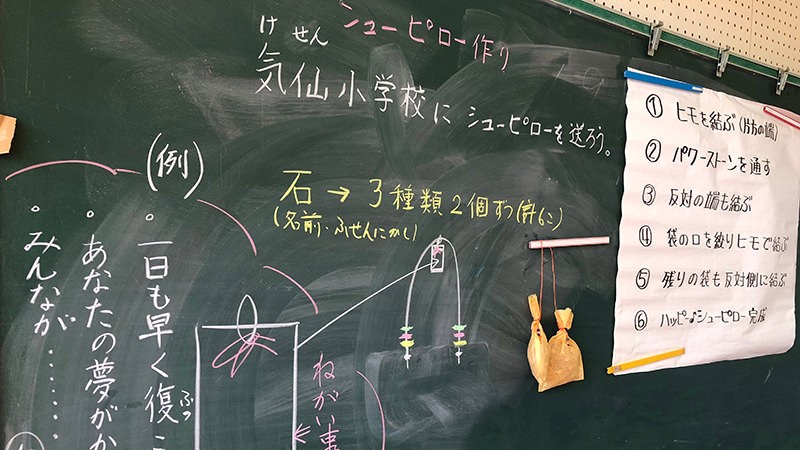 シューピロー作り
けせん
気仙小学校に シューピローを送ろう。
石→3種類2個ずつ(計6こ)
(名前・ふせんにかく)
(例)
・一日も早く復こ
ふっ
・あなたの夢がか
・みんなが.......
ねがい事
① ヒモを結ぶ(片方の端)
② パワーストーンを通す
③ 反対の端も結ぶ
④ 袋の口を絞りヒモで結ぶ
⑤ 残りの袋も反対側に結ぶ
⑥ ハッピー♪シューピロー完成